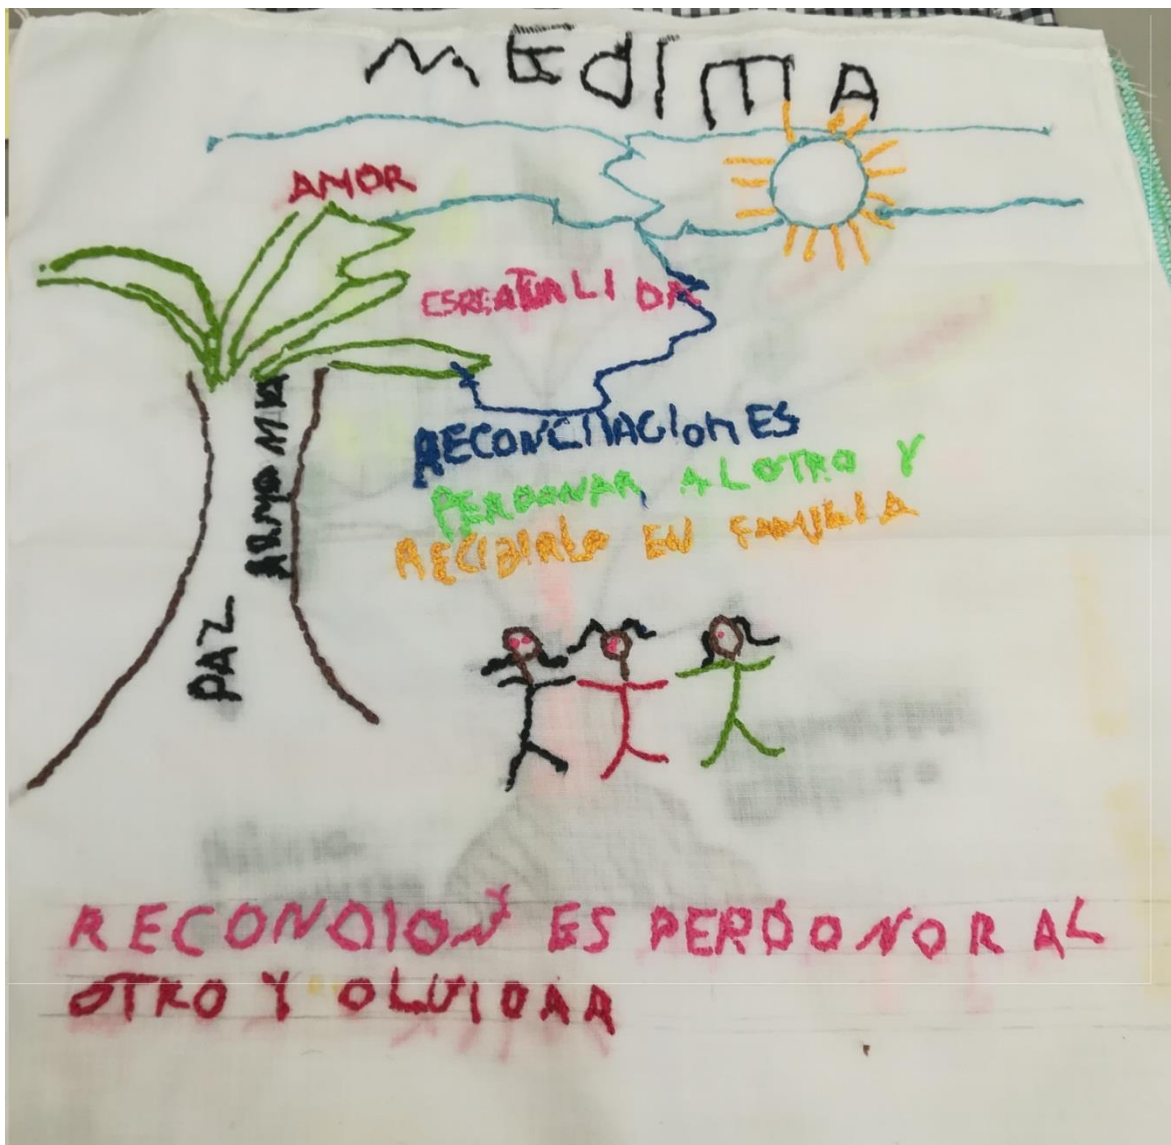 MEDIMA
AMOR
RECONCILIACIONES
PERDONAR AL OTRO Y
RECIBIRLO EN FAMILIA
PAZ
RECONDION Y ES PERDONOR AL
OTRO Y OLVIDAR